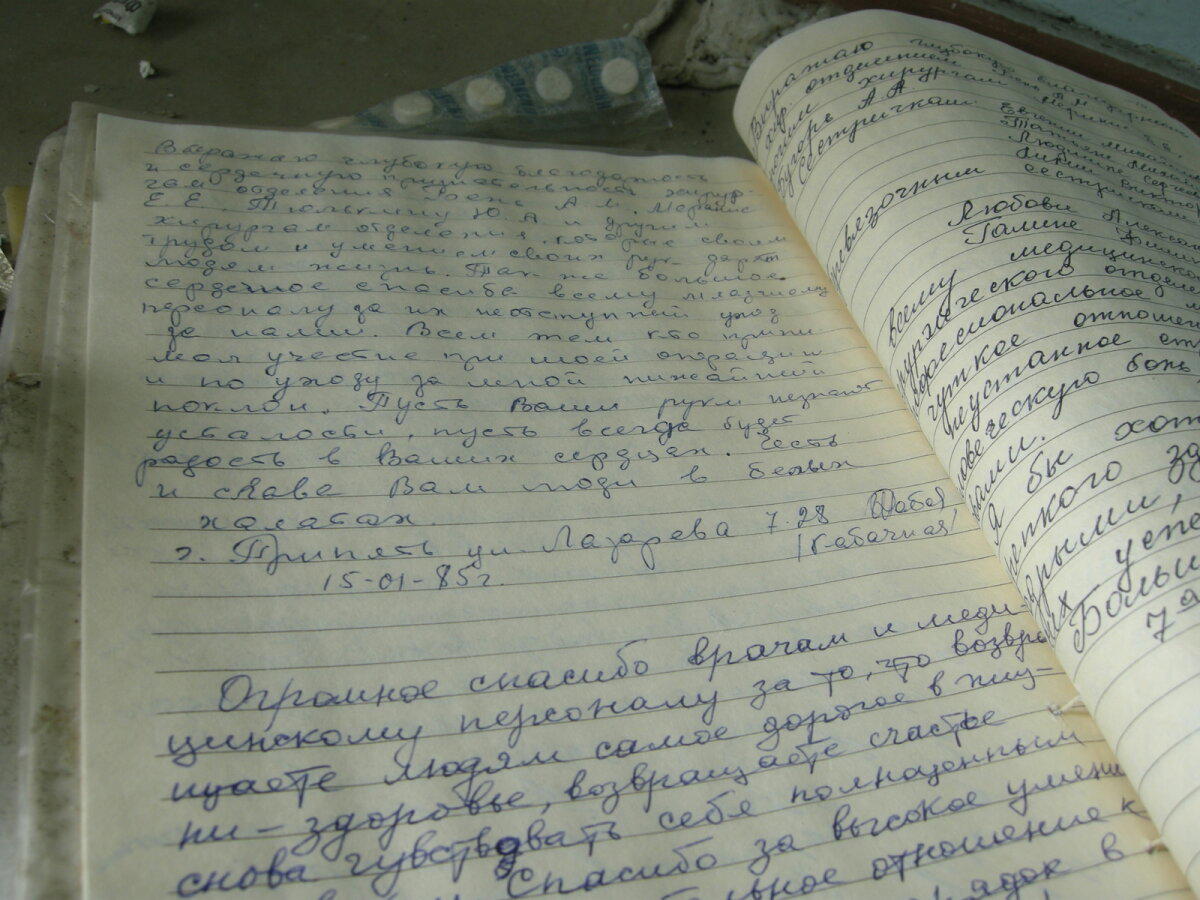 Выражаю глубокую благодарность
и сердечную признательность хирур-
гам отделения Бень А. М.
Е. Е. Тюлькину Ю. А и другим
хирургам отделения, которые своим
трудом и умением своих рук дарят
людям жизнь. Так же большое
сердечное спасибо всему младшему
персоналу за их неотступный уход
за нами. Всем тем кто прини
мал участие при моей операции
и по уходу за мной нижайший
поклон. Пусть Ваши руки незнают
усталости, пусть всегда будет
радость в Ваших сердцах. Честь
и слава Вам люди в белых
халатах.
г. Припять ул. Лазарева 7.28
15-01-85г.
Огромное спасибо врачам и меди-
цинскому персоналу за то, что возвра
щаете людям самое дорогое в жиз-
ни - здоровье, возвращаете счастье
снова чувствовать себя полноценным
Спасибо за высокое умение
отношение к
Выражаю глубокую
хир. отделением
хирургам
Бугорь А. А
Сестричкам
Евгении
Татьяне
Людмиле
сестричкам
Любови Алекса
Галине
всему медицинско
рургического отдел
фессиональное
чуткое отношен
неустанное ст
ловеческую боль
вами.
Я бы хот
епкого зд
дрыми,
их успе
Больш
7а